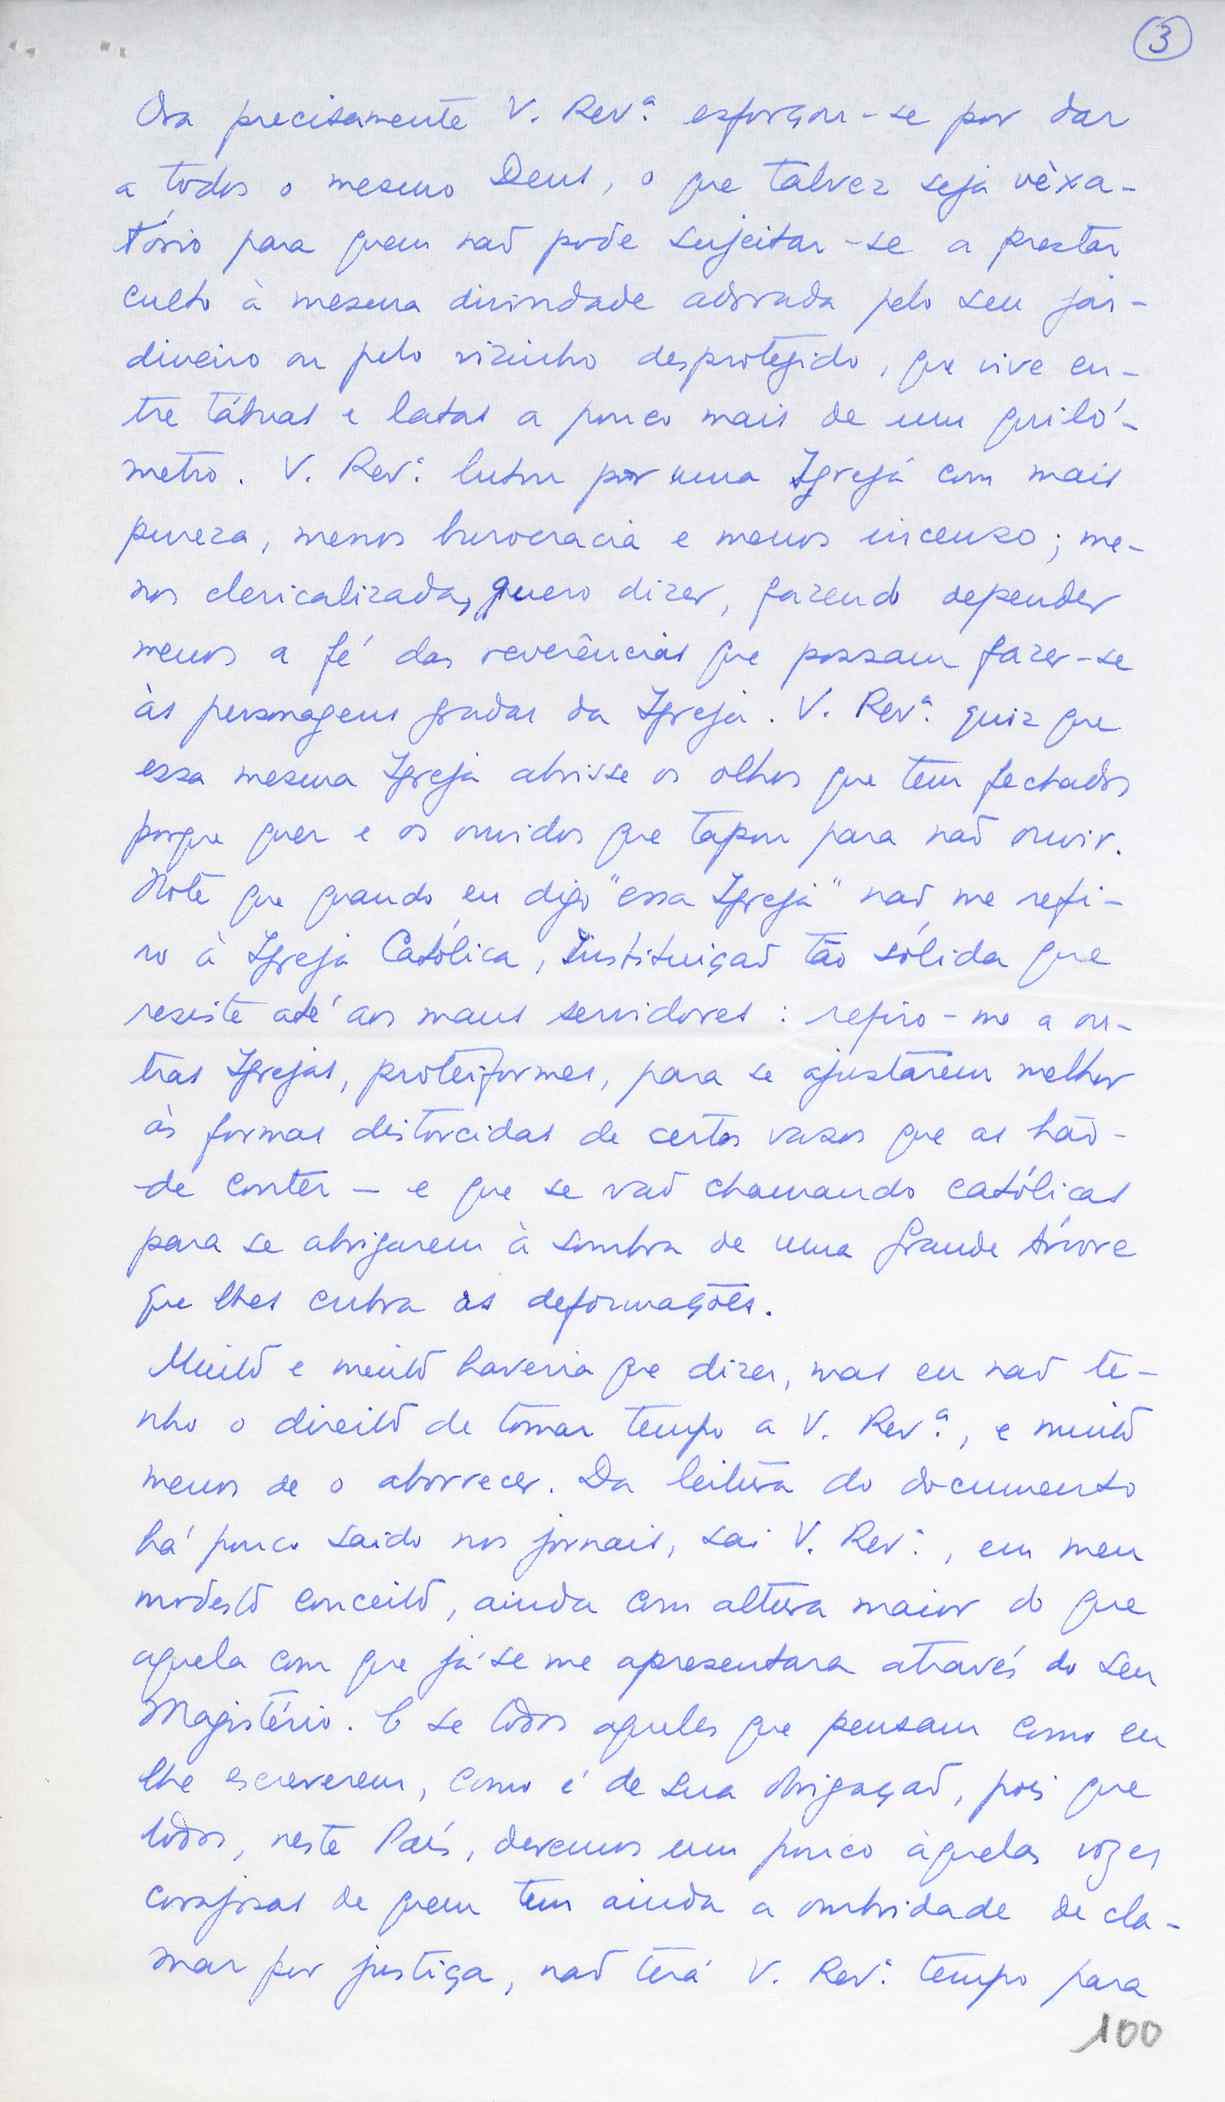 3
Ora precisamente V. Rev.ª esforçou-se por dar
a todos o mesmo Deus, o que talvez seja vèxa-
tório para quem não pode sujeitar-se a prestar
culto à mesma divindade adorada pelo seu jar-
dineiro ou pelo vizinho desprotegido, que vive en-
tre tábuas e latas a pouco mais de um quiló-
metro. V. Rev.ª lutou por uma Igreja com mais
pureza, menos burocracia e menos incenso; me-
nos clericalizada, quero dizer, fazendo depender
menos a fé das reverências que possam fazer-se
às personagens gradas da Igreja. V. Rev.ª quiz que
essa mesma Igreja abrisse os olhos que tem fechados
porque quer e os ouvidos que tapou para não ouvir.
Note que quando eu digo "essa Igreja" não me refi-
ro à Igreja Católica, Instituição tão sólida que
resiste até aos maus servidores: refiro-me a ou-
tras Igrejas, proteiformes, para se ajustarem melhor
às formas distorcidas de certos vasos que as hão-
-de conter - e que se vão chamando católicas
para se abrigarem à sombra de uma Grande Árvore
que lhes cubra as deformações.
Muito e muito haveria que dizer, mas eu não te-
nho o direito de tomar tempo a V. Rev.ª, e muito
menos de o aborrecer. Da leitura do documento
há pouco saido nos jornais, sai V. Rev.ª, em meu
modesto conceito, ainda com altura maior do que
aquela com que já se me apresentara através do seu
Magistério. E se todos aqueles que pensam como eu
lhe escreverem, como é de sua obrigação, pois que
todos, neste País, devemos um pouco àquelas vozes
corajosas de quem tem ainda a ombridade de cla-
mar por justiça, não terá V. Rev.ª tempo para
100